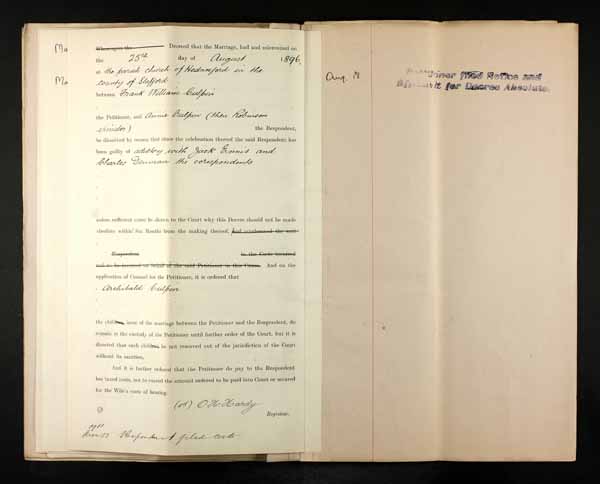 Ma
Whereupon the Decreed that the Marriage, had and solemnized on
the 25th day of August 1896,
at the parish church of Hednesford in the
Ma
county of Stafford
between Frank William Culpin
the Petitioner, and Annie Culpin (then Robinson
spinster) the Respondent,
be dissolved by reason that since the celebration thereof the said Respondent has
been guilty of adultery with Jack Ennis and
Charles Denman the corespondents
unless sufficient cause be shewn to the Court why this Decree should not be made
absolute within Six Months from the making thereof, and condemned the said
Respondent in the Costs incurred
and to be incurred on behalf of the said Petitioner in this Cause. And on the
application of Counsel for the Petitioner, it is ordered that
Archibald Culpin
the children, issue of the marriage between the Petitioner and the Respondent, do
remain in the custody of the Petitioner until further order of the Court, but it is
directed that such children be not removed out of the jurisdiction of the Court
without its sanction.
And it is further ordered that the Petitioner do pay to the Respondent
her taxed costs, not to exceed the amount ordered to be paid into Court or secured
for the Wife's costs of hearing.
Registrar.
Respondent filed costs
Aug. 18
filed Notice and
Affidavit for Decree Absolute.